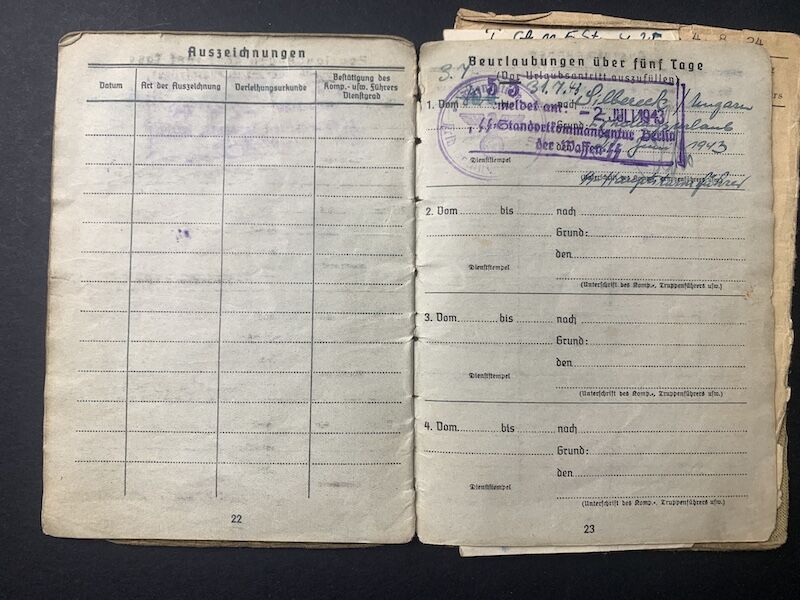 Auszeichnungen
Datum
Art der Auszeichnung
Verleihungsurkunde
Bestätigung des
Komp.- usw. Führers
Dienstgrad
22
4. 8. 24
Beurlaubungen über fünf Tage
(Vor Urlaubsantritt auszufüllen)
3.7
31.7.43
1. Vom nach Ungarn
meldet am: - 2. JULI 1943
urlaub
SS-Standortkommandantur Berlin
1943
der Waffen-SS
Dienststempel
2. Vom bis nach
Grund:
den
Dienststempel
(Unterschrift des Komp.-, Truppenführers usw.)
3. Vom bis nach
Grund:
den
Dienststempel
(Unterschrift des Komp.-, Truppenführers usw.)
4. Vom bis nach
Grund:
den
Dienststempel
(Unterschrift des Komp.-, Truppenführers usw.)
23